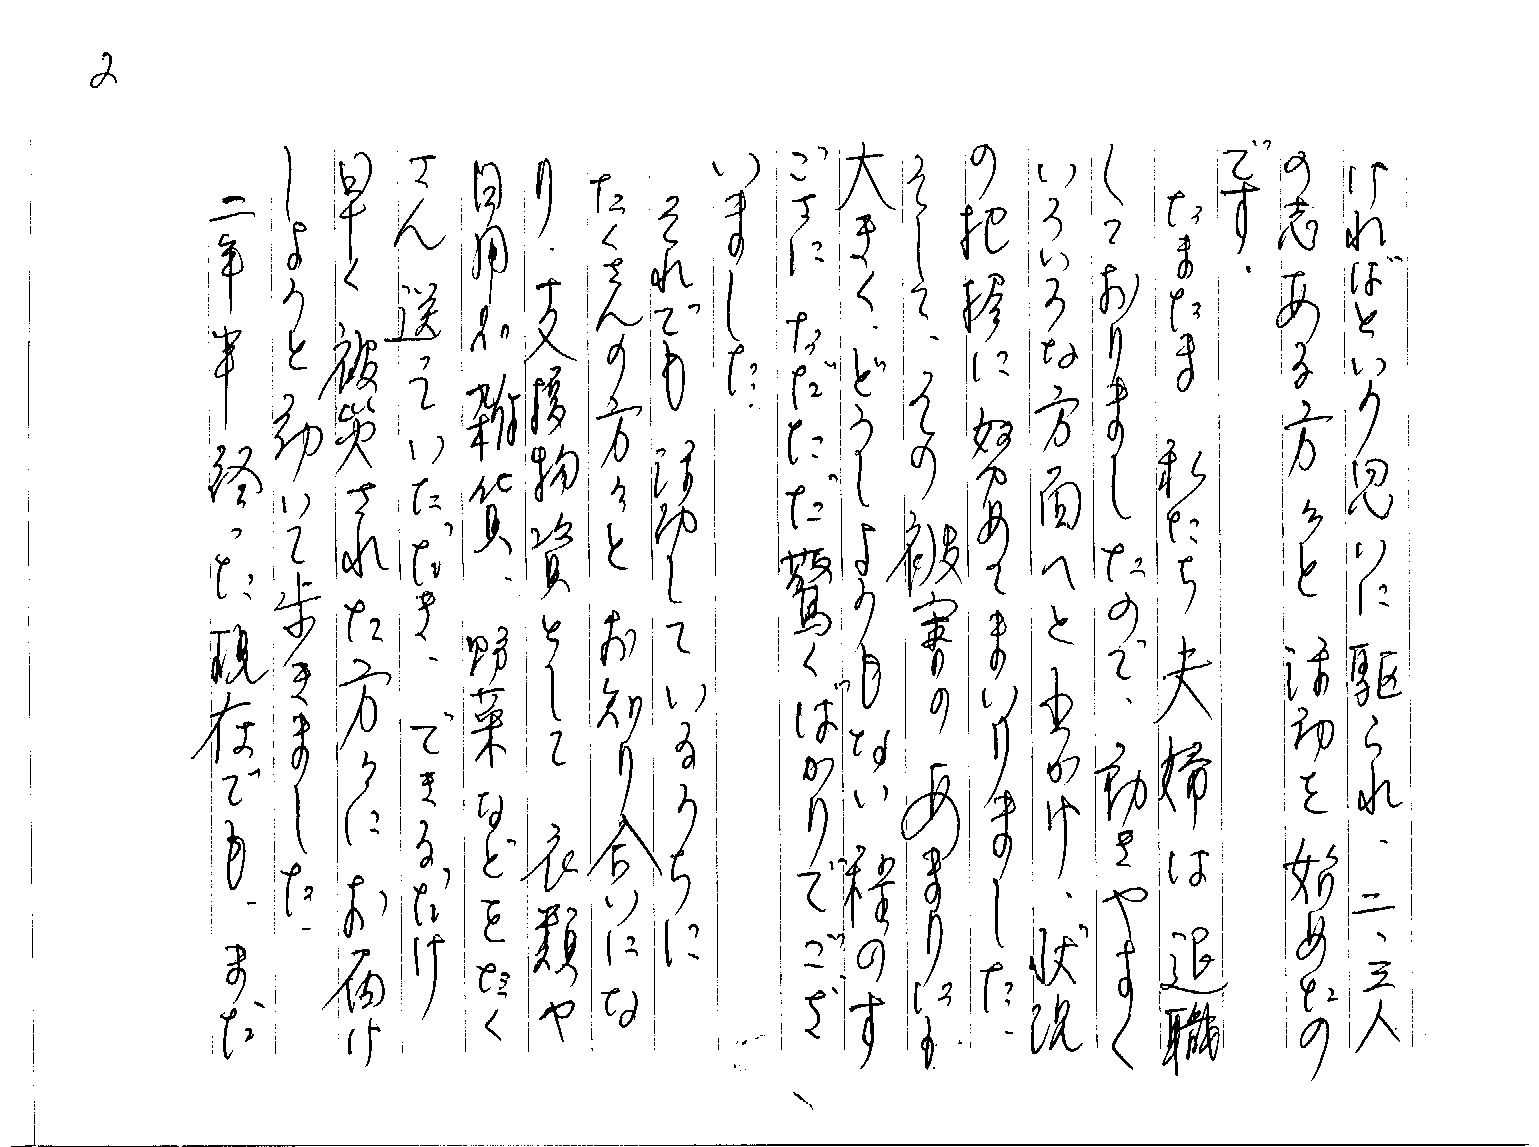 2
ければという思いに駆られ、二、三人
の志ある方々と活動を始めたの
です.
たまたま私たち夫婦は退職
しておりましたので、動きやすく
いろいろな方面へと出かけ、状況
の把握に努めてまいりました.
そして、その被害のあまりにも
大きく、どうしようもない程のす
ごさにただただ驚くばかりでござ
いました.
それでも活動しているうちに
たくさんの方々とお知り合いにな
り.支援物資として衣類や
日用品雑貨、野菜などをたく
さん送っていただき、できるだけ
早く被災された方々にお届け
しようと動いて歩きました.
二年半経った現在でも.まだ